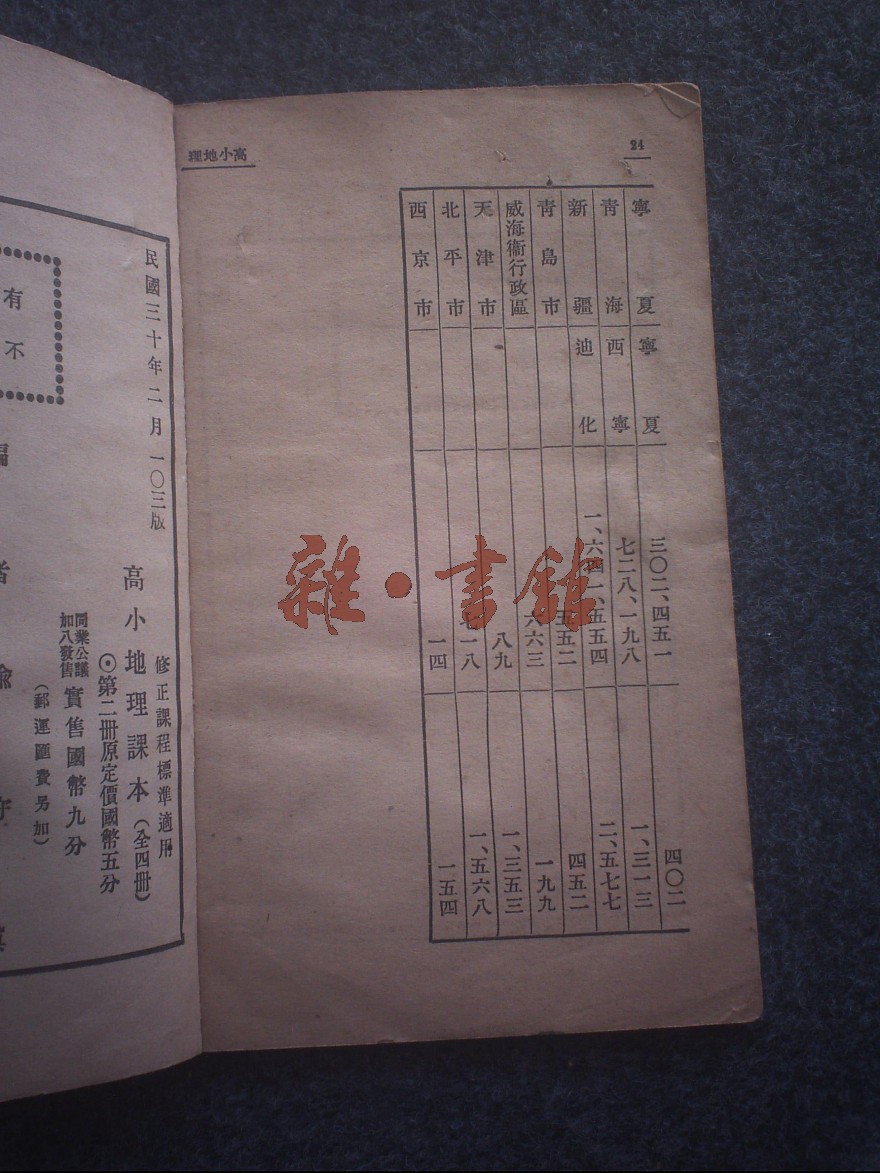 24
高小地理
寧夏 寧夏 三〇二、四五一 四〇二
青海 西寧 七二八、一九八 一、三一三
新疆 迪化 一、六四一、五五四 二、五七七
青島市 五五二 四五二
威海衞行政區 六六三 一九九
天津市 八九 一、三五三
北平市 七一八 一、五六八
西京市 一四 一五四
雜·書館
民國三十年二月一〇三版
修正課程標準適用
高小地理課本(全四冊)
⊙第二冊原定價國幣五分
同業公議
加八發售
實售國幣九分
(郵運匯費另加)
有
不